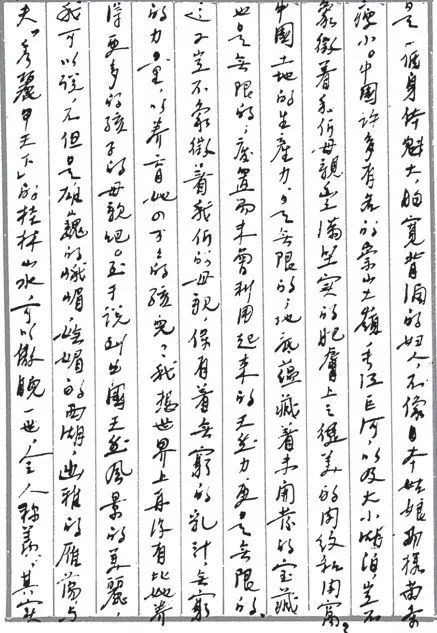 是一個身体魁大、胸寬背濶的妇人,不像日本姑娘那樣苗條
瘦小。中国許多有名的崇山大嶺,長江巨河,以及大小湖泊,豈不
象徵着我們母親丰滿坚实的肥膚上之健美的肉纹和肉窩?
中國土地的生產力是無限的;地底蘊藏着未開發的宝藏
也是無限的;废置而未曾利用起来的天然力,更是無限的,
这又豈不象徵着我們的母親,保有着無窮的乳汁,無窮
的力量,以养育她四万万的孩兒?我想世界上再没有比她养
得更多的孩子的母親吧。至于说到中國天然風景的美麗,
我可以说,不但是雄巍的峨嵋,嫵媚的西湖,幽雅的雁蕩,与
夫“秀麗甲天下”的桂林山水,可以傲睨一世,令人称羡;其实